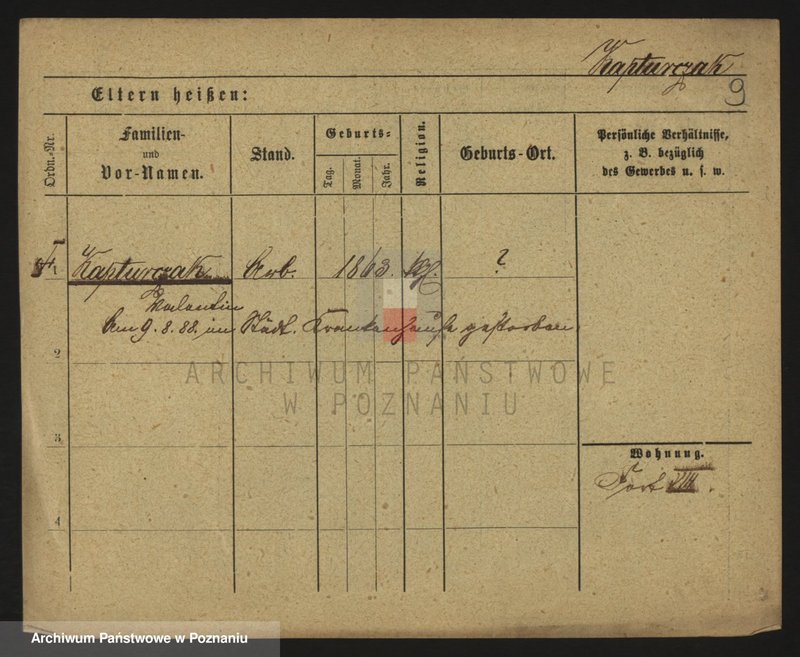 Kapturczak
9
Eltern heißen:
Ordn.-Nr.
Familien-
und
Vor-Namen.
Stand.
Geburts-
Tag.
Monat.
Jahr.
Religion.
Geburts-Ort.
Persönliche Verhältnisse,
z. B. bezüglich
des Gewerbes u. s. w.
1
Kapturczak Arb. 1863. kth. ?
Valentin
Am 9.8.88. im Städt. Krankenhause gestorben.
2
ARCHIWUM PAŃSTWOWE
W POZNANIU
3
Wohnung.
Fort VIII.
4
Archiwum Państwowe w Poznaniu